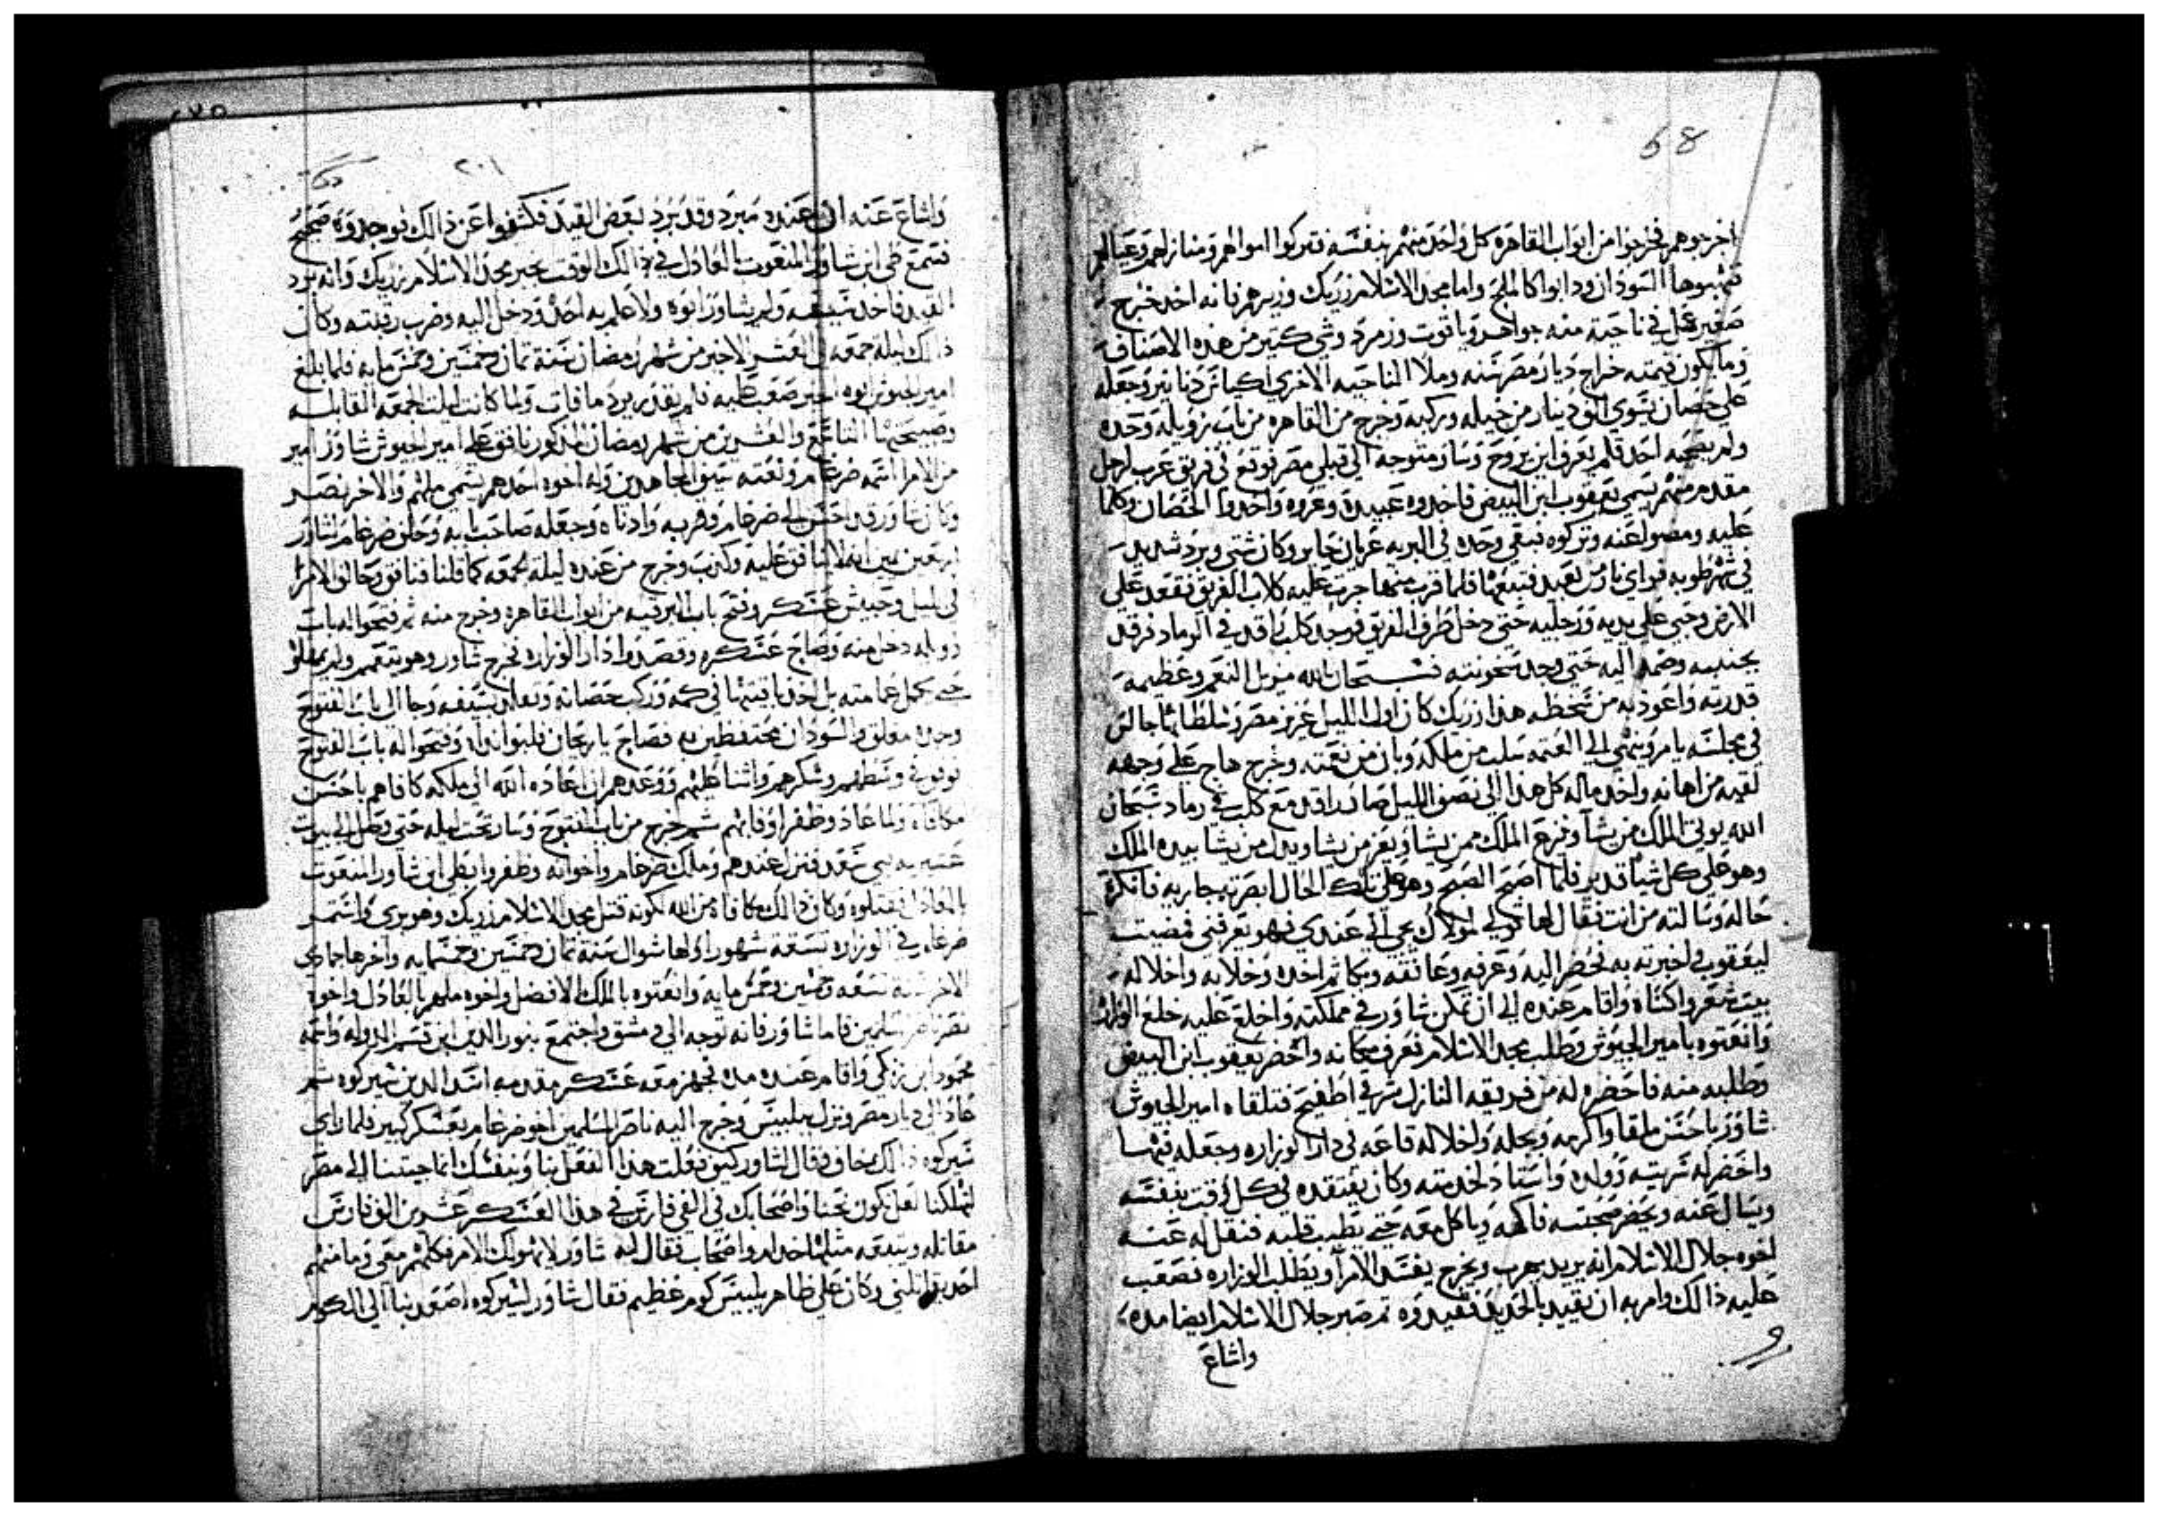 68
اخرجوهم فخرجوا من ابواب القاهرة كل واحد منهم بنفسه فتركوا اموالهم ومنازلهم وعيالهم
فنهبوها السودان ودابوا كالملح واما مجد الاسلام زريك وزيرهم فانه اخد خرج
صغير عمل في ناحية منه جواهر وياقوت وزمرد وشي كتير من هذه الاصناف
وما يكون قيمته خراج ديار مصر سنه وملا الناحيه الاخري اكياس دنانير وجعله
علي حصان يسوي الف دينار من خيله وركبه وخرج من القاهره من باب زويله وحده
ولم يصحبه احد فلم يعرف اين يروح وسار متوجه الي قبلي مصر فوقع في فريق عرب لرجل
مقدم منهم يسمي يعقوب ابن البيض فاخدوه عبيده وعروه واخدوا الحصان وكلما
عليه ومضوا عنه وتركوه فبقي وحده في البريه عريان حاير وكان شتي وبرد شديد
في شهر طوبه فراي نار من بعيد فتبعها فلما قرب منها جرت عليه كلاب الفريق فقعد علي
الارض وحبي علي يديه ورجليه حتي دخل طرف الفريق فوجد كلب راقد في الرماد فرقد
بجنبه وضمه اليه حتي وجد سخونته فسبحان الله مزيل النعم وعظيمة
قدرته واعوذ به من سخطه هذا زريك كان اول الليل عزيز مصر وسلطانها جالس
في مجلسه يامر وينهي الي العتمه سلب من ملكه وبان من نعمته وخرج هاج علي وجهه
لقيه من اهانه واخد ماله كل هذا الي نصف الليل صار راقد مع كلب في رماد سبحان
الله يوتي الملك من يشا وينزع الملك ممن يشا ويعز من يشا ويدل من يشا بيده الملك
وهو علي كل شيا قدير فلما اصبح الصبح وهو علي تلك الحال ابصرته جاريه فانكرة
حاله وسالته من انت فقال لها قولي لمولاك يجي الي عندي فهو يعرفني فمضيت
ليعقوب اخبرته به فحضر اليه وعرفه وعانقه وبكا ثم اخده وخلا به واخلا له
بيت شعر واكساه واقام عنده الي ان تمكن شاور في مملكته واخلع عليه خلع الوزاره
وانعتوه بامير الجيوش وطلب مجد الاسلام فعرف مكانه واحضر يعقوب ابن البيض
وطلبه منه فاحضره له من فريقه النازل شرقي اطفيح فتلقاه امير الجيوش
شاور باحسن ملقا واكرمه وبجله واخلا له قاعه في دار الوزاره وجعله فيها
واحضر له سريته وولده واستاد لخدمته وكان يفتقده في كل وقت بنفسه
ويسال عنه ويحضر صحبته فاكهه وياكل معه حتي يطيب قلبه فنقل له عنه
اخوه جلال الاسلام انه يريد يهرب ويخرج يفسد الامرا ويطلب الوزاره فصعب
عليه ذالك وامر به ان يقيد بالحديد فقيدوه تم صبر جلال الاسلام ايضا مده
واشاع
٢٠١
واشاع عنه ان عنده مبرد وقد برد بعض القيد فكشفوا عن ذالك فوجدوه صحيح
فسمع طي ابن شاور المنعوت بالعادل في ذالك الوقت بخبر مجد الاسلام زريك وانه برد
القيد فاخد سيفه ولم يشاور ابوه ولا علم به احد ودخل اليه وضرب رقبته وكان
ذالك ليلة جمعه في العشر الاخير من شهر رمضان سنة تمان وخمسين وخمس مايه فلما بلغ
امير الجيوش ابوه الخبر صعب عليه فلم يقدر يرد ما فات ولما كانت ليلت الجمعه القابله
وصبيحتها التاسع والعشرين من شهر رمضان المذكور نافق علي امير الجيوش شاور امير
من الامرا اسمه ضرغام ونعته سيف المجاهدين وله اخوه احدهم يسمي ملهم والاخر نصر
وكان شاور قد احسن الي ضرغام وقربه وادناه وجعله صاحب بابه وحلف ضرغام لشاور
اربعين يمين انه لا ينافق عليه وكذب وخرج من عنده ليلة الجمعه كما قلنا فنافق وحالف الامرا
في الليل وجيش عسكر وفتح باب البرقيه من ابواب القاهره وخرج منه ثم فتحوا له باب
زويله دخل منه وصاح عسكره وقصدوا دار الوزاره فخرج شاور وهو يتعمم ولم يمهلوه
حتي يكمل عمامته بل اخد باقيتها في كمه وركب حصانه وتقلد بسيفه وجا الي باب الفتوح
وجده مغلق والسودان محتفظين به فصاح يا ريحان فلبوا نداه وفتحوا له باب الفتوح
فوقف وسطهم وشكرهم واثنا عليهم ووعدهم ان اعاده الله الي ملكه كافاهم باحسن
مكافاه ولما عاد وظفر اوفا لهم ثم خرج من باب الفتوح وسار تحت ليله حتي وصل الي بيوت
عشيرته بني سعد فنزل عندهم وملك ضرغام واخوانه وظفروا بطي ابن شاور المنعوت
بالعادل فقتلوه وكان ذالك مكافاه من الله لكونه قتل مجد الاسلام زريك وهو بري واستمر
ضرغام في الوزاره تسعة شهور اولها شوال سنة تمان وخمسين وخمسمايه واخرها جمادي
الاخر سنة تسعه وخمسين وخمس مايه وانعتوه بالملك الافضل واخوه ملهم بالعادل واخوه
نصر ناصر المسلمين فاما شاور فانه توجه الي دمشق واجتمع بنور الدين ابن قسيم الدوله واسمه
محمود ابن زنكي واقام عنده مده فجهز معه عسكر مقدمه اسد الدين شيركوه ثم
عاد الي ديار مصر ونزل ببلبيس وخرج اليه ناصر المسلمين اخو ضرغام بعسكر كبير فلما راي
شيركوه ذالك خاف وقال لشاور كيف تعلت هذا الفعل بنا وبنفسك انما جيتنا الي مصر
لتملكنا لعل نكون نحنا واصحابك في الفي فارس في هذا العسكر عشرين الف فارس
مقاتله ويتبعه مثلها خدام واصحاب فقال له شاور لا يهولك الامر فكلهم معي وما منهم
احد يقاتلني وكان علي ظاهر بلبيس كوم عظيم فقال شاور لشيركوه اصعد بنا الي الكوم